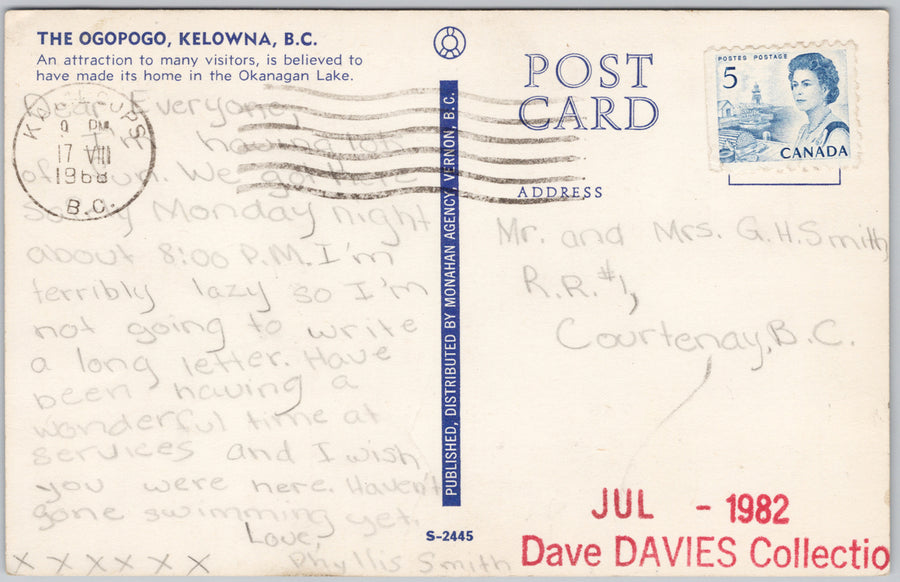 THE OGOPOGO, KELOWNA, B.C.
An attraction to many visitors, is believed to
have made its home in the Okanagan Lake.
KAMLOOPS
9 PM
17 VIII
1968
B.C.
Dear Everyone,
having lots
of fun. We got here
Monday night
about 8:00 P.M. I'm
terribly lazy so I'm
not going to write
a long letter. Have
been having a
wonderful time at
services and I wish
you were here. Haven't
gone swimming yet.
Love,
Phyllis Smith
x x x x x x
PUBLISHED, DISTRIBUTED BY MONAHAN AGENCY, VERNON, B.C.
S-2445
POST
CARD
ADDRESS
POSTES POSTAGE
5
CANADA
Mr. and Mrs. G.H. Smith
R.R. #1,
Courtenay, B.C.
JUL - 1982
Dave DAVIES Collectio